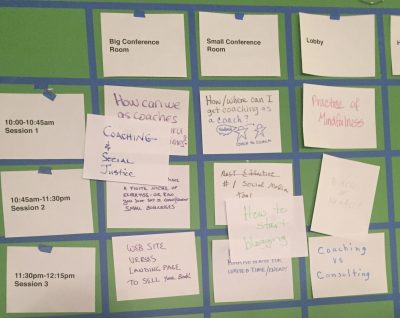 Big Conference
Room
Small Conference
Room
Lobby
H
10:00-10:45am
Session 1
How can we
as coaches
COACHING
&
Social
Justice
How/where can I
get coaching as
a coach?
COACH TO COACH
Practice of
Mindfulness
10:45am-11:30pm
Session 2
HAVE
A FINITE NICHE OF
EXPERTISE - OR CAN
YOU
SMALL BUSINESSES
Most Effective
#1 Social Media
tool
How to
start
blogging
11:30pm-12:15pm
Session 3
WEB SITE
VERSUS
LANDING PAGE
TO SELL YOUR BOOK
LIMITED TIME/ENERGY
Coaching
vs
Consulting